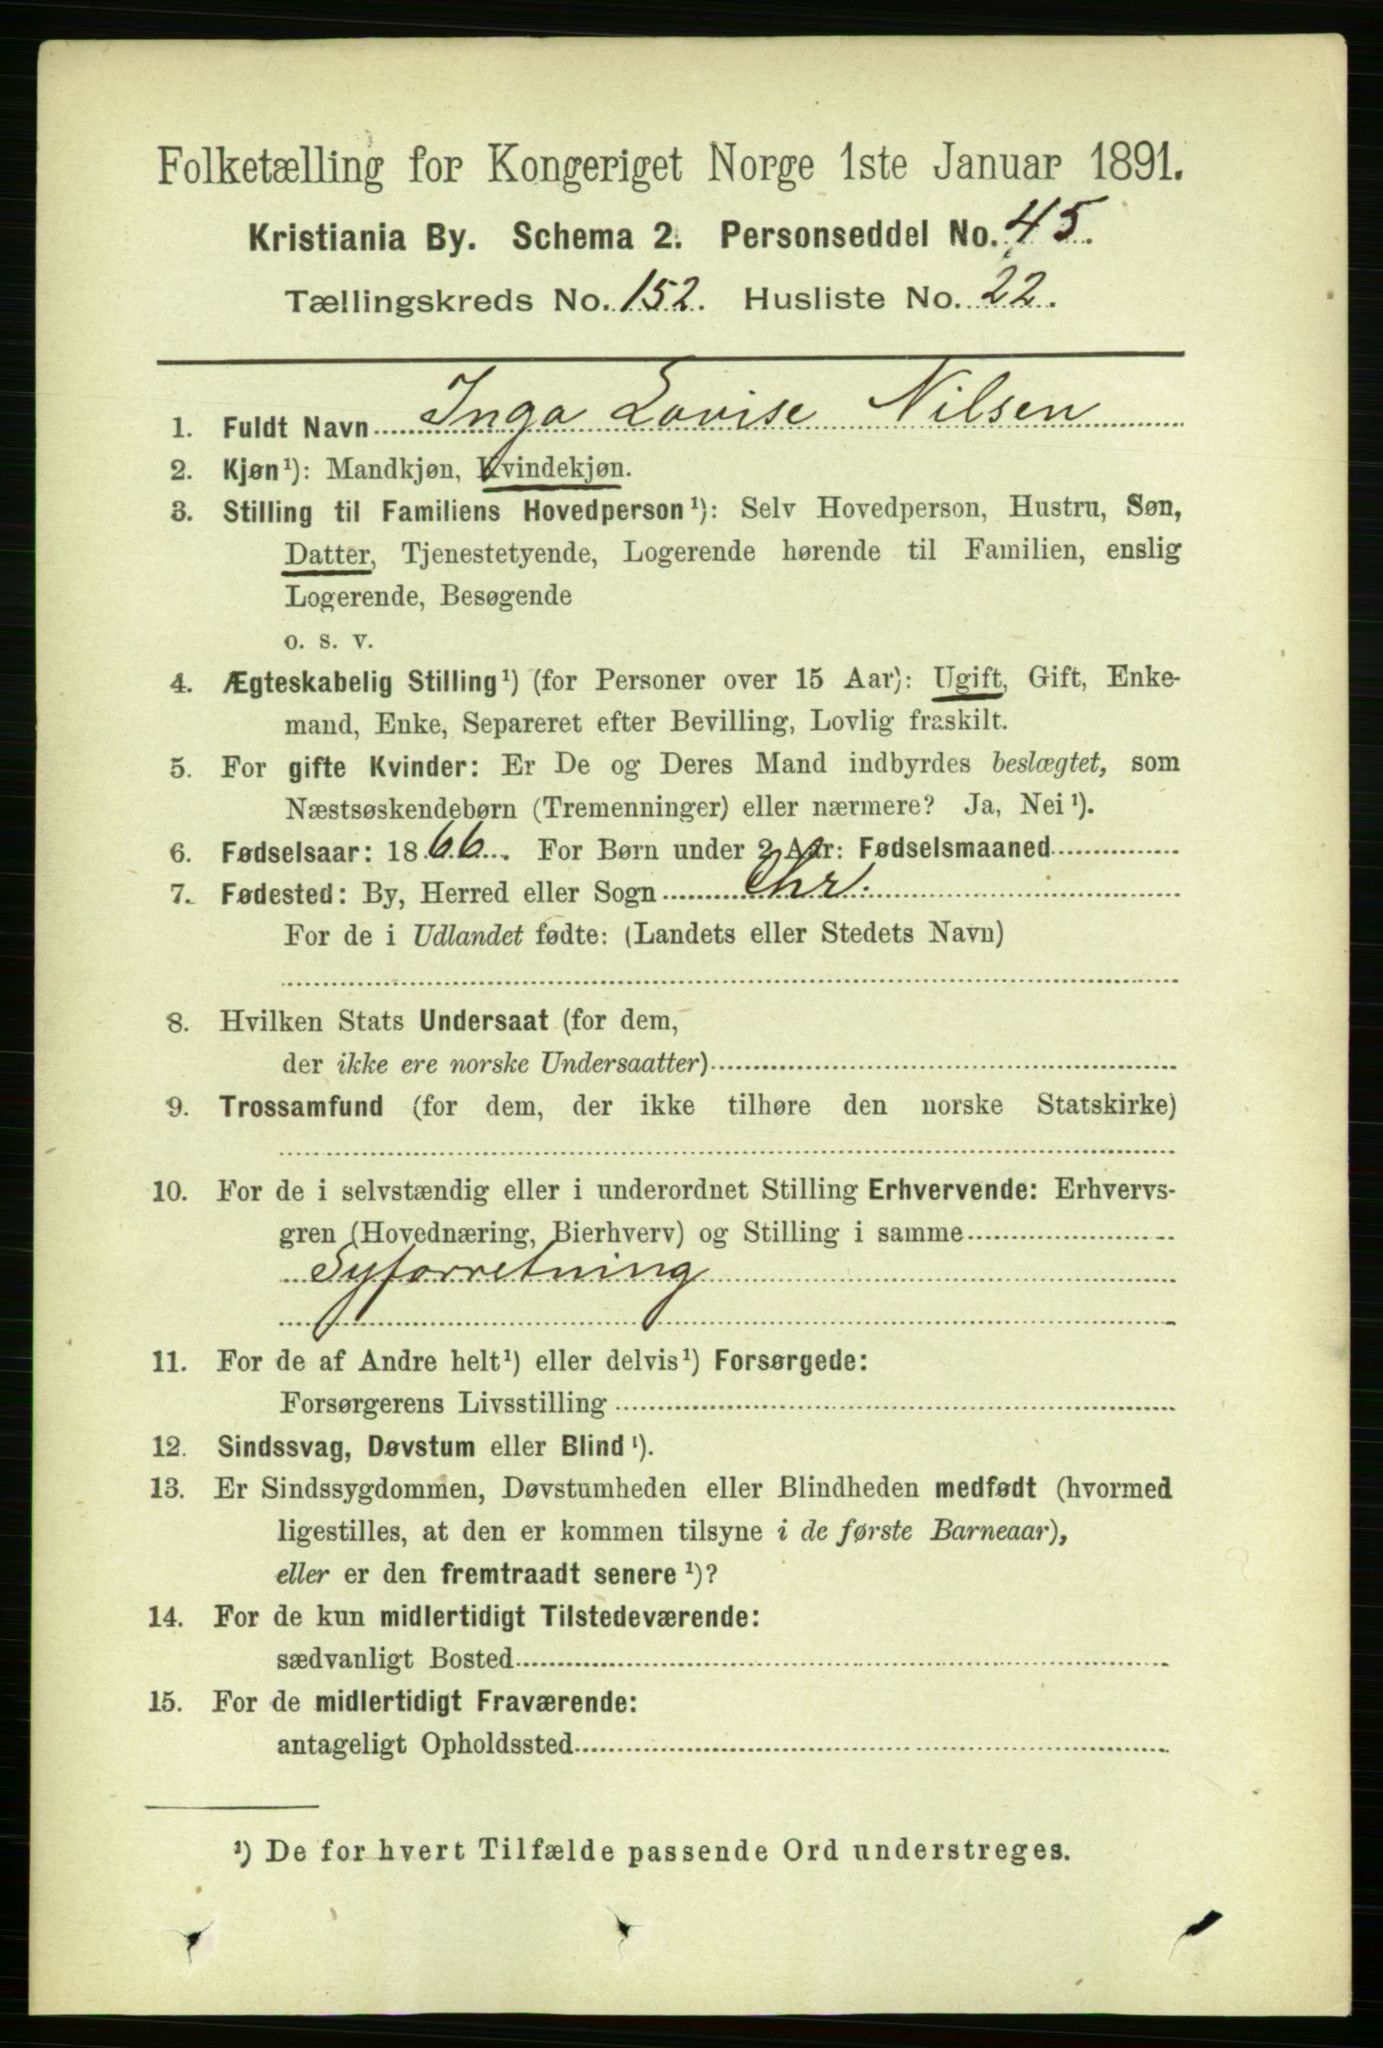 Folketælling for Kongeriget Norge 1ste Januar 1891.
Kristiania By. Schema 2. Personseddel No. 45.
Tællingskreds No. 152. Husliste No. 22.
1. Fuldt Navn Inga Lovise Nilsen
2. Kjøn¹): Mandkjøn, Kvindekjøn.
3. Stilling til Familiens Hovedperson¹): Selv Hovedperson, Hustru, Søn,
Datter, Tjenestetyende, Logerende hørende til Familien, enslig
Logerende, Besøgende
o. s. v.
4. Ægteskabelig Stilling¹) (for Personer over 15 Aar): Ugift, Gift, Enke-
mand, Enke, Separeret efter Bevilling, Lovlig fraskilt.
5. For gifte Kvinder: Er De og Deres Mand indbyrdes beslægtet, som
Næstsøskendebørn (Tremenninger) eller nærmere? Ja, Nei¹).
6. Fødselsaar: 1866. For Børn under 2 Aar: Fødselsmaaned
7. Fødested: By, Herred eller Sogn Chr.
For de i Udlandet fødte: (Landets eller Stedets Navn)
8. Hvilken Stats Undersaat (for dem,
der ikke ere norske Undersaatter)
9. Trossamfund (for dem, der ikke tilhøre den norske Statskirke)
10. For de i selvstændig eller i underordnet Stilling Erhvervende: Erhvervs-
gren (Hovednæring, Bierhverv) og Stilling i samme
Syforretning
11. For de af Andre helt¹) eller delvis¹) Forsørgede:
Forsørgerens Livsstilling
12. Sindssvag, Døvstum eller Blind¹).
13. Er Sindssygdommen, Døvstumheden eller Blindheden medfødt (hvormed
ligestilles, at den er kommen tilsyne i de første Barneaar),
eller er den fremtraadt senere¹)?
14. For de kun midlertidigt Tilstedeværende:
sædvanligt Bosted
15. For de midlertidigt Fraværende:
antageligt Opholdssted
¹) De for hvert Tilfælde passende Ord understreges.